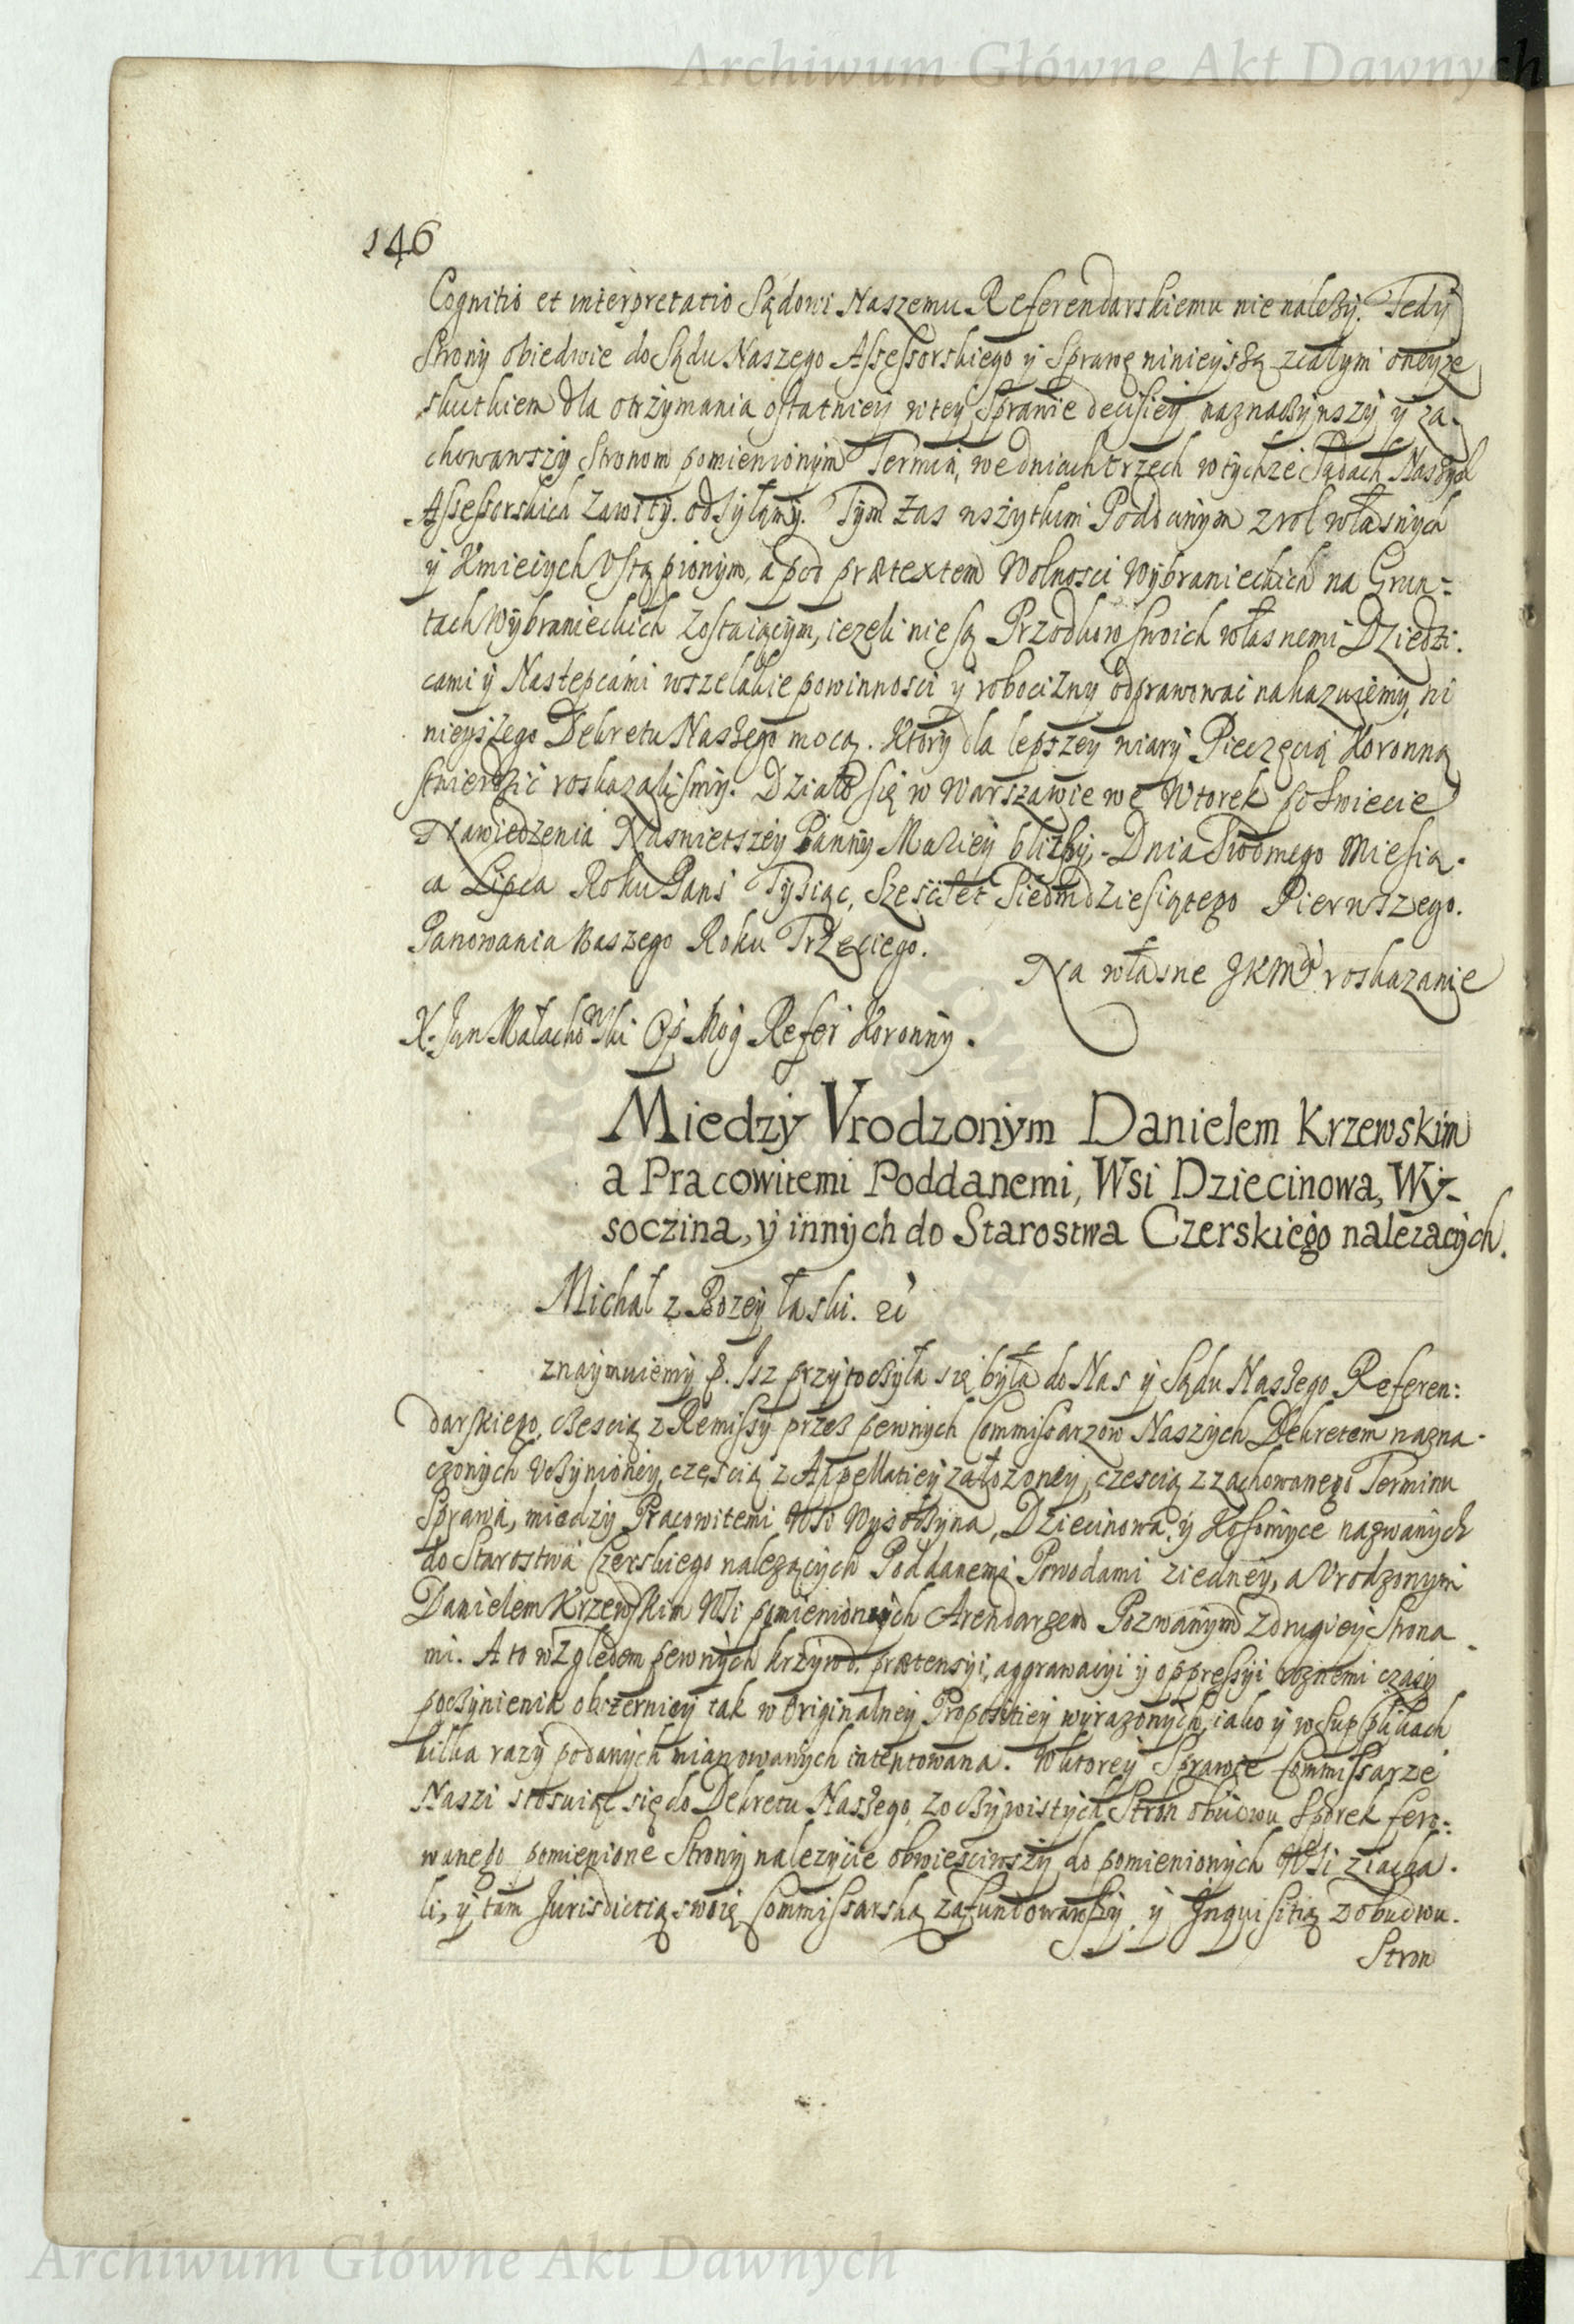 Archiwum Główne Akt Dawnych
146
Cognitio et interpretatio Sądowi Naszemu Referendarskiemu nie należy. Tedy
Strony obiedwie do Sądu Naszego Assessorskiego y Sprawę ninieyszą zcałym oneyże
skutkiem dla otrzymania ostatniey wtey Sprawie decisiey naznaczywszy y za-
chowawszy Stronom pomienionym Termin, we dniach trzech wtychże Sądach Naszych
Assessorskich Zawity. odsyłamy. Tym zas wszytkim Poddanym z rol własnych
y Kmiecych Ustąpionym, a pod prætextem Wolnosci Wybranieckich na Grun-
tach Wybranieckich Zostaiącym, iezeli nie są Przodkow swoich własnemi Dziedzi-
cami y Nastepcami wszelakie powinnosci y robocizny odprawować nakazuiemy, ni
nieyszego Dekretu Naszego mocą. Ktory dla lepszey wiary Pieczęcią Koronną
stwierdzić roskazalismy. Działo się w Warszawie we Wtorek po Swiecie
Nawiedzenia Naswietszey Panny Mariey blizszy, Dnia Siodmego Miesią-
ca Lipca Roku Pans Tysiąc, Sześćset Siedmdziesiątego Pierwszego.
Panowania Naszego Roku Trzeciego.
Na własne JKMci roskazanie
X. Jan Małachowski Op Mog Refer Koronny.
Miedzy Vrodzonym Danielem Krzewskim
a Pracowitemi Poddanemi, Wsi Dziecinowa, Wy-
soczina, y innych do Starostwa Czerskiego nalezacych.
Michał z Bozey łaski. et
znaymuiemy p. Isz przytoczyła się była do Nas y Sądu Naszego Referen:
darskiego, czescią z Remissy przez pewnych Commissarzow Naszych Dekretem nazna-
czonych Uczynioney, częscią z Appellatiey załozoney, czescią z zachowanego Terminu
Sprawa, miedzy Pracowitemi Wsi Wysoczyna, Dziecinowa, y Kosomyce nazwanych
do Starostwa Czerskiego nalezących Poddanemi Powodami ziedney, a Vrodzonym
Danielem Krzewskim Wsi pomienionych Arendarzem Pozwanym zdrugiey Strona-
mi. A to względem pewnych krzywd, prætensyi, aggrawacyi y oppressyi roznemi czasy
poczynienia obszerniey tak w Originalney Propositiey wyrazonych, iako y w Supplikach
kilka razy podanych mianowanych intentowana. Wktorey Sprawie Commissarze
Naszi stosuiąc się do Dekretu Naszego, z oczywistych Stron obudwu Sporek fero-
wanego pomienione Strony nalezycie obwiesciwszy do pomienionych Wsi ziacha-
li, y tam Jurisdictią swoię Commissarską zafundowawszy y Inquisitią z obudwu.
Stron
Archiwum Główne Akt Dawnych